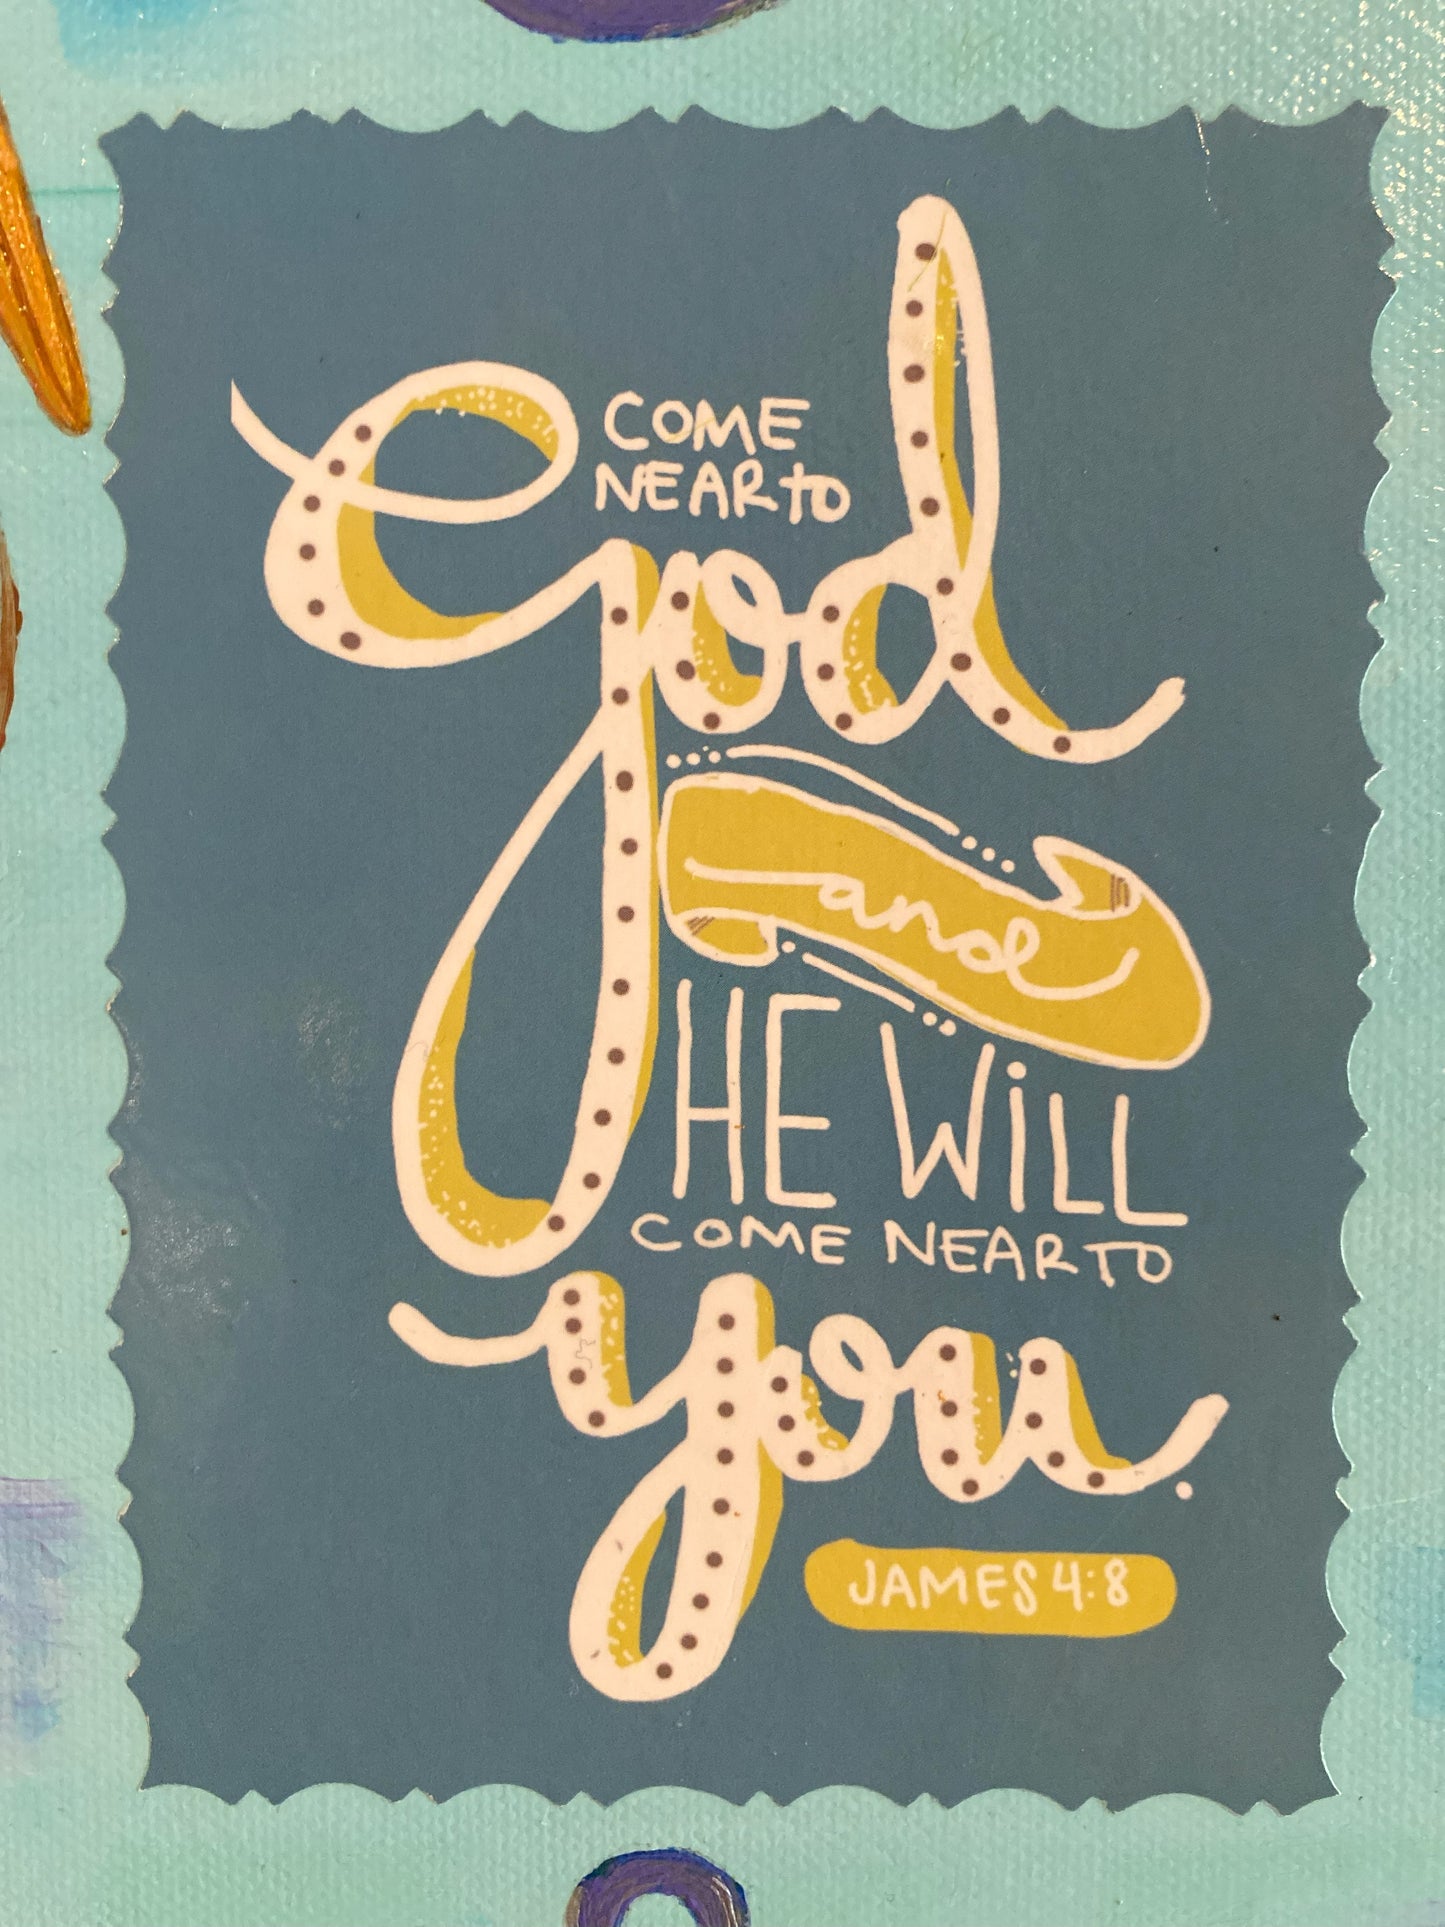 COME
NEAR TO
God
and
HE WiLL
COME NEAR TO
you.
JAMES 4:8